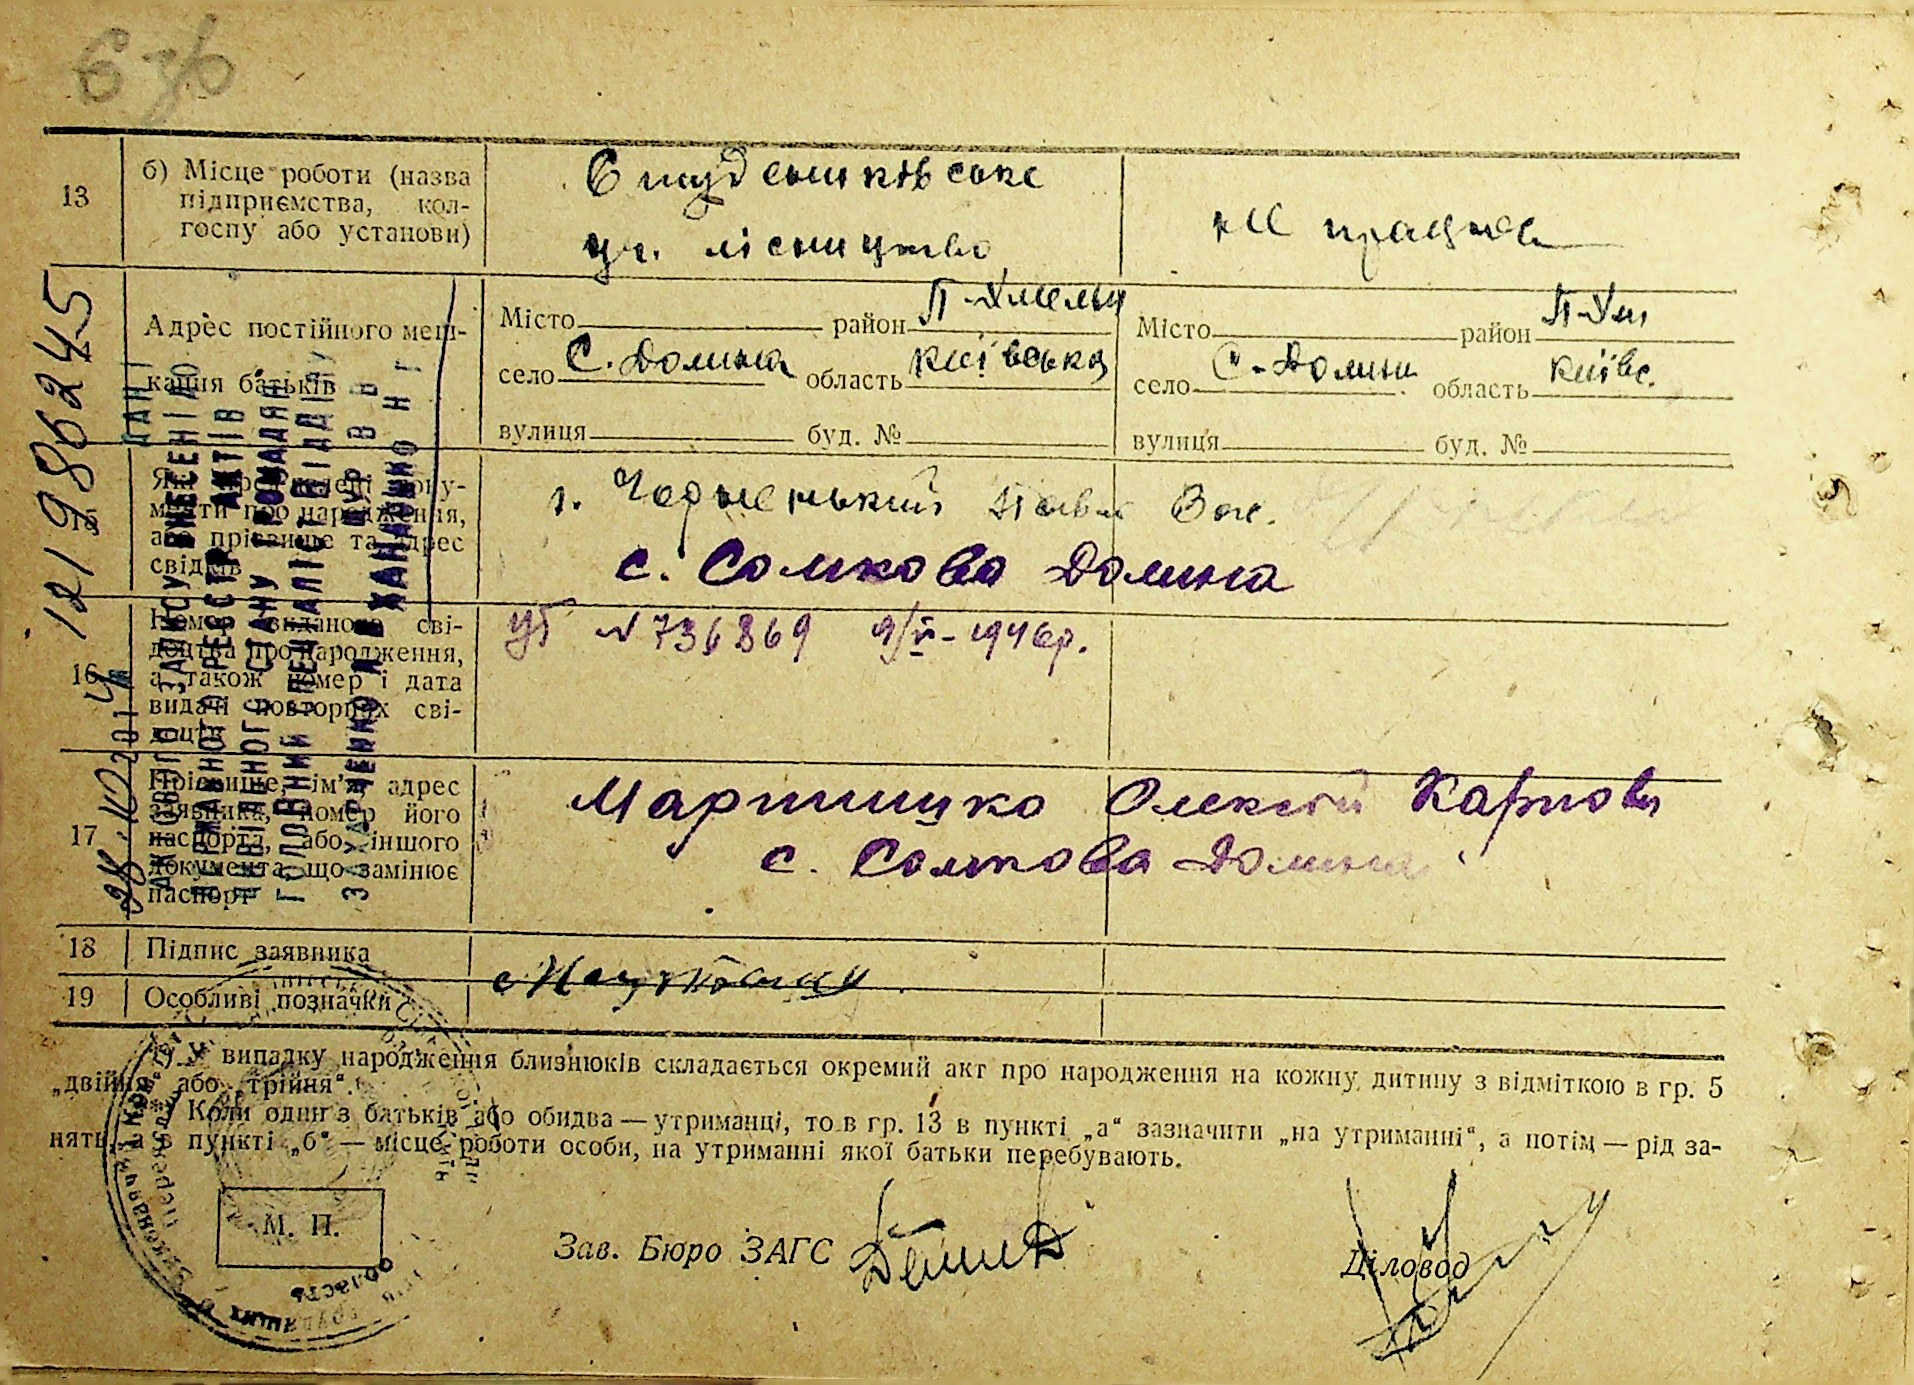 13
б) Місце роботи (назва
підприємства, кол-
госпу або установи)
Студениківське
уч. лісництво
не працює
Адрес постійного меш-
кання батьків
Місто район П-Хмельн
село С. Долина область київська
вулиця буд. №
Місто район П-Хм
село С. Долина область київс.
вулиця буд. №
15
Які пред'явлені доку-
менти про народження,
або прізвище та адрес
свідків
1. Чорненький
с. Сомкова Долина
16
Номер виданого сві-
доцтва про народження,
а також номер і дата
видачі повторних сві-
доцтв
УБ № 736869 9/VI-1946р.
17
Прізвище, ім'я, адрес
заявника, номер його
паспорта, або іншого
документа, що замінює
паспорт
Мартишко Олексій Карпов
с. Сомкова Долина
18
Підпис заявника
19
Особливі позначки
*) У випадку народження близнюків складається окремий акт про народження на кожну дитину з відміткою в гр. 5
„двійня“ або „трійня“.
**) Коли один з батьків або обидва — утриманці, то в гр. 13 в пункті „а“ зазначити „на утриманні“, а потім — рід за-
нять, а в пункті „б“ — місце роботи особи, на утриманні якої батьки перебувають.
М. П.
Зав. Бюро ЗАГС
Діловод
ДАНІ
АКТОВОГО ЗАПИСУ ВНЕСЕНІ ДО
ДЕРЖАВНОГО РЕЄСТРУ АКТІВ
ЦИВІЛЬНОГО СТАНУ ГРОМАДЯН
ГОЛОВНИЙ СПЕЦІАЛІСТ ВІДДІЛУ
ЗАХАРЧЕНКО
ХАНДЮКО Н Г
121986245
область